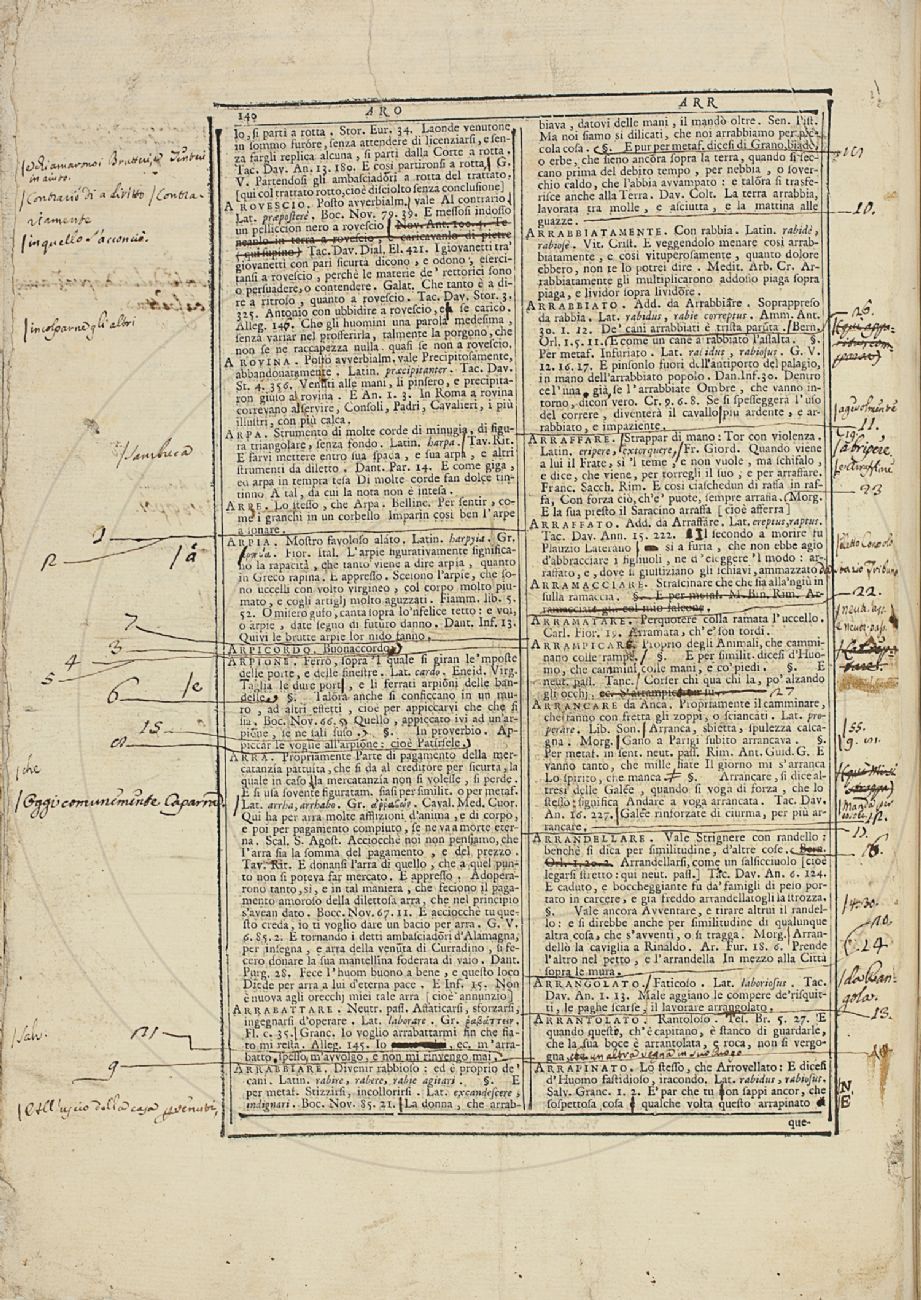 140
ARO
ARR
lo, si parti a rotta. Stor. Eur. 34. Laonde venutone
in sommo furore, senza attendere di licenziarsi, e sen-
za fargli replica alcuna, si partì dalla Corte a rotta.
Tac. Dav. An. 13. 180. E così partironsi a rotta. G.
V. Partendosi gli ambasciadori a rotta del trattato.
[qui col trattato rotto, cioè disciolto senza conclusione]
A ROVESCIO. Posto avverbialm. vale Al contrario
Lat. præposterè. Boc. Nov. 79. 39. E messosi indosso
un pelliccion nero a rovescio Nov. Ant. 100. 4.
in terra a rovescio, e caricavanlo di pietre
(qui supino) Tac. Dav. Dial. El. 421. I giovanetti tra'
giovanetti con pari sicurtà dicono, e odono, eserci-
tansi a rovescio, perchè le materie de' rettorici sono
o persuadere, o contendere. Galat. Che tanto è a di-
re a ritroso, quanto a rovescio. Tac. Dav. Stor. 3.
325. Antonio con ubbidire a rovescio, e se carico.
Alleg. 146. Che gli huomini una parola medesima,
senza variar nel profferirla, talmente la porgono, che
non se ne raccapezza nulla, quasi se non a rovescio.
A ROVINA. Posto avverbialm. vale Precipitosamente,
abbandonatamente. Latin. præcipitanter. Tac. Dav.
St. 4. 356. Venuti alle mani, si pinsero, e precipita-
ron giuso al rovina. E An. 1. 3. In Roma a rovina
correvano al servire, Consoli, Padri, Cavalieri, i più
illustri, con più calca.
ARPA. Strumento di molte corde di minugia, di figu-
ra triangolare, senza fondo. Latin. harpa. Tav. Rit.
E farvi mettere entro sua spada, e sua arpa, e altri
strumenti da diletto. Dant. Par. 14. E come giga,
ed arpa in tempra tesa Di molte corde fan dolce tin-
tinno A tal, da cui la nota non è intesa.
ARPE. Lo stesso, che Arpa. Bellinc. Per sentir, co-
me i granchi in un corbello Imparin così ben l'arpe
a sonare.
ARPIA. Mostro favoloso alato. Latin. harpyia. Gr.
Fior. Ital. L'arpie figurativamente significa-
no la rapacità, che tanto viene a dire arpia, quanto
in Greco rapina. E appresso. Sceiono l'arpie, che so-
no uccelli con volto virgineo, col corpo molto piu-
mato, e cogli artigli molto aguzzati. Fiamm. lib. 5.
52. O misero gufo, canta sopra lo'nfelice tetto: e voi,
o arpie, date segno di futuro danno. Dant. Inf. 13.
Quivi le brutte arpie lor nido fanno.
ARPICORDO. Buonaccordo.
ARPIONE. Ferro, sopra 'l quale si giran le'mposte
delle porte, e delle finestre. Lat. cardo. Eneid. Virg.
Taglia le dure porti, e li ferrati arpioni delle ban-
delle. §. Talora anche si conficcano in un mu-
ro, ad altri effetti, cioè per appiccarvi che che si
sia. Boc. Nov. 66. 5. Quello, appiccato ivi ad un'ar-
pione, se ne salì suso. §. In proverbio. Ap-
piccar le voglie all'arpione: cioè Patirsele.
ARRA. Propriamente Parte di pagamento della mer-
catanzia pattuita, che si da al creditore per sicurtà, la
quale in caso la mercatanzia non si volesse, si perde.
E si usa sovente figuratam. siasi per similit. o per metaf.
Lat. arrha, arrhabo. Gr. ἀῤῥαβών. Caval. Med. Cuor.
Qui ha per arra molte afflizioni d'anima, e di corpo,
e poi per pagamento compiuto, se ne va a morte eter-
na. Scal. S. Agost. Acciocchè noi non pensiamo, che
l'arra sia la somma del pagamento, e del prezzo.
Tav. Rit. E donansi l'arra di quello, che a quel pun-
to non si poteva far mercato. E appresso. Adopera-
rono tanto, sì, e in tal maniera, che feciono il paga-
mento amoroso della dilettosa arra, che nel principio
s'avean dato. Bocc. Nov. 67. 11. E acciocchè tu que-
sto creda, io ti voglio dare un bacio per arra. G. V.
6. 85. 2. E tornando i detti ambasciadori d'Alamagna,
per insegna, e arra della venuta di Curradino, fe-
cero donare la sua mantellina foderata di vaio. Dant.
Purg. 28. Fece l'huom buono a bene, e questo loco
Diede per arra a lui d'eterna pace. E Inf. 15. Non
è nuova agli orecchi miei tale arra [cioè annunzio]
ARRABATTARE. Neutr. pass. Affaticarsi, sforzarsi,
ingegnarsi d'operare. Lat. laborare. Gr.
Fl. c. 35. Granc. Io voglio arrabattarmi fin che fia-
to mi resta. Alleg. 145. Io ec. m'arra-
batto, spesso, m'avvolgo, e non mi rinvengo mai.
ARRABBIARE. Divenir rabbioso: ed è proprio de'
cani. Latin. rabire, rabere, rabie agitari. §. E
per metaf. Stizzirsi, incollorirsi. Lat. excandescere,
indignari. Boc. Nov. 85. 21. La donna, che arrab-
biava, datovi delle mani, il mandò oltre. Sen. Pist.
Ma noi siamo si dilicati, che noi arrabbiamo per pic-
cola cosa. §. E pur per metaf. dicesi di Grano, biade,
o erbe, che sieno ancora sopra la terra, quando si sec-
cano prima del debito tempo, per nebbia, o sover-
chio caldo, che l'abbia avvampato: e talora si trasfe-
risce anche alla Terra. Dav. Colt. La terra arrabbia,
lavorata tra molle, e asciutta, e la mattina alle
guazze.
ARRABBIATAMENTE. Con rabbia. Latin. rabidè,
rabiosè. Vit. Crist. E veggendolo menare così arrab-
biatamente, e così vituperosamente, quanto dolore
ebbero, non te lo potrei dire. Medit. Arb. Cr. Ar-
rabbiatamente gli multiplicarono addosso piaga sopra
piaga, e lividor sopra lividore.
ARRABBIATO. Add. da Arrabbiare. Soprappreso
da rabbia. Lat. rabidus, rabie correptus. Amm. Ant.
30. 1. 12. De' cani arrabbiati è trista paruta. Bern.
Orl. 1. 5. 11. E come un cane arrabbiato l'assalta. §.
Per metaf. Infuriato. Lat. rabidus, rabiosus. G. V.
12. 16. 17. E pinsonlo fuori dell'antiporto del palagio,
in mano dell'arrabbiato popolo. Dan. Inf. 30. Dentro
ce l'una già, se l'arrabbiate Ombre, che vanno in-
torno, dicon vero. Cr. 9. 6. 8. Se si spesseggerà l'uso
del correre, diventerà il cavallo più ardente, e ar-
rabbiato, e impaziente.
ARRAFFARE. Strappar di mano: Tor con violenza.
Latin. eripere, extorquere, Fr. Giord. Quando viene
a lui il Frate, sì 'l teme, e non vuole, ma schifalo,
e dice, che viene, per torregli il suo; e per arraffare.
Franc. Sacch. Rim. E così ciaschedun di raffa in raf-
fa, Con forza ciò, ch'e' puote, sempre arraffa. Morg.
E la sua presto il Saracino arraffa [cioè afferra]
ARRAFFATO. Add. da Arraffare. Lat. ereptus, raptus.
Tac. Dav. Ann. 15. 222. Il secondo a morire fu
Plauzio Laterano si a furia, che non ebbe agio
d'abbracciare i figliuoli, ne d'eleggere 'l modo: ar-
raffato, e, dove si giustiziano gli schiavi, ammazzato
ARRAMACCIARE. Strascinare che che sia all'ingiù in
sulla ramaccia. §. E per metaf. M. Bin. Rim. Ar-
ramacciata giù col mio falcone.
ARRAMATARE. Perquotere colla ramata l'uccello.
Carl. Fior. 19. Arramata, ch'e' son tordi.
ARRAMPICARE. Proprio degli Animali, che cammi-
nano colle rampe. §. E per similit. dicesi d'Huo-
mo, che cammini colle mani, e co'piedi. §. E
neut. pass. Tanc. Corser chi qua chi là, po'alzando
gli occhi,
ARRANCARE da Anca. Propriamente il camminare,
che fanno con fretta gli zoppi, o sciancati. Lat. pro-
perare. Lib. Son. Arranca, sbietta, spulezza calca-
gna. Morg. Gano a Parigi subito arrancava. §.
Per metaf. in sent. neut. pass. Rim. Ant. Guid. G. E
vanno tanto, che mille fiate Il giorno mi s'arranca
Lo spirito, che manca. §. Arrancare, si dice al-
tresì delle Galée, quando si voga di forza, che lo
stesso significa Andare a voga arrancata. Tac. Dav.
An. 16. 227. Galée rinforzate di ciurma, per più ar-
rancare.
ARRANDELLARE. Vale Strignere con randello:
benchè si dica per similitudine, d'altre cose. Bern.
Orl. 1. 20. 2. Arrandellarsi, come un salsicciuolo [cioè
legarsi stretto: qui neut. pass.] Tac. Dav. An. 6. 124.
E caduto, e boccheggiante fu da'famigli di peso por-
tato in carcere, e già freddo arrandellatogli la strozza.
§. Vale ancora Avventare, e tirare altrui il randel-
lo: e si direbbe anche per similitudine di qualunque
altra cosa, che s'avventi, o si tragga. Morg. Arran-
dellò la caviglia a Rinaldo. Ar. Fur. 18. 6. Prende
l'altro nel petto, e l'arrandella In mezzo alla Città
sopra le mura.
ARRANGOLATO. Faticoso. Lat. laboriosus. Tac.
Dav. An. 1. 13. Male aggiano le compere de'risqui-
ti, le paghe scarse, il lavorare arrangolato.
ARRANTOLATO. Rantoloso. Tes. Br. 5. 27. E
quando queste, ch'è capitano, è stanco di guardarle,
che la sua boce è arrantolata, e roca, non si vergo-
gna, che un altro vegna in suo luogo
ARRAPINATO. Lo stesso, che Arrovellato: E dicesi
d'Huomo fastidioso, iracondo. Lat. rabidus, rabiosus.
Salv. Granc. 1. 2. E' par che tu non sappi ancor, che
sospettosa cosa è qualche volta questo arrapinato
que-
in quello s'acconciò.
incolparne gli altri
Sambuca
1
2
7
3
4
5
6
15
8
che
Oggi comunemente Caparra
Salv.
21
9
10.
26
11.
19
23
22.
27
55.
12.
16.
14. 30.
20.
24
13.
N
E